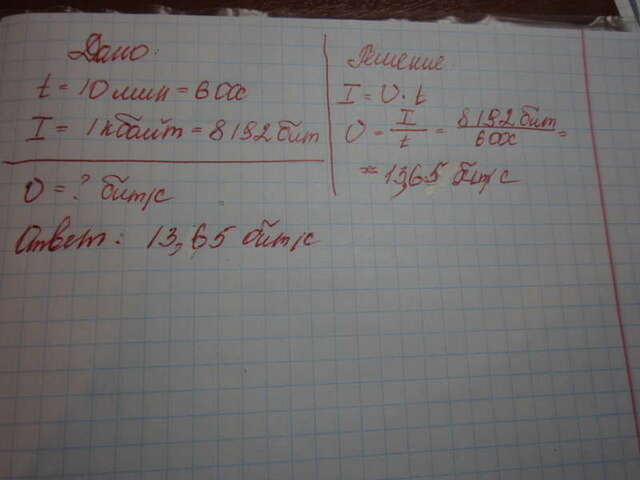 Дано:
t = 10 мин = 600с
I = 1 кбайт = 8192 бит
υ = ? бит/с
Решение
I = υ · t
υ = I/t = 8192 бит/600с =
≈ 13,65 бит/с
Ответ: 13,65 бит/с